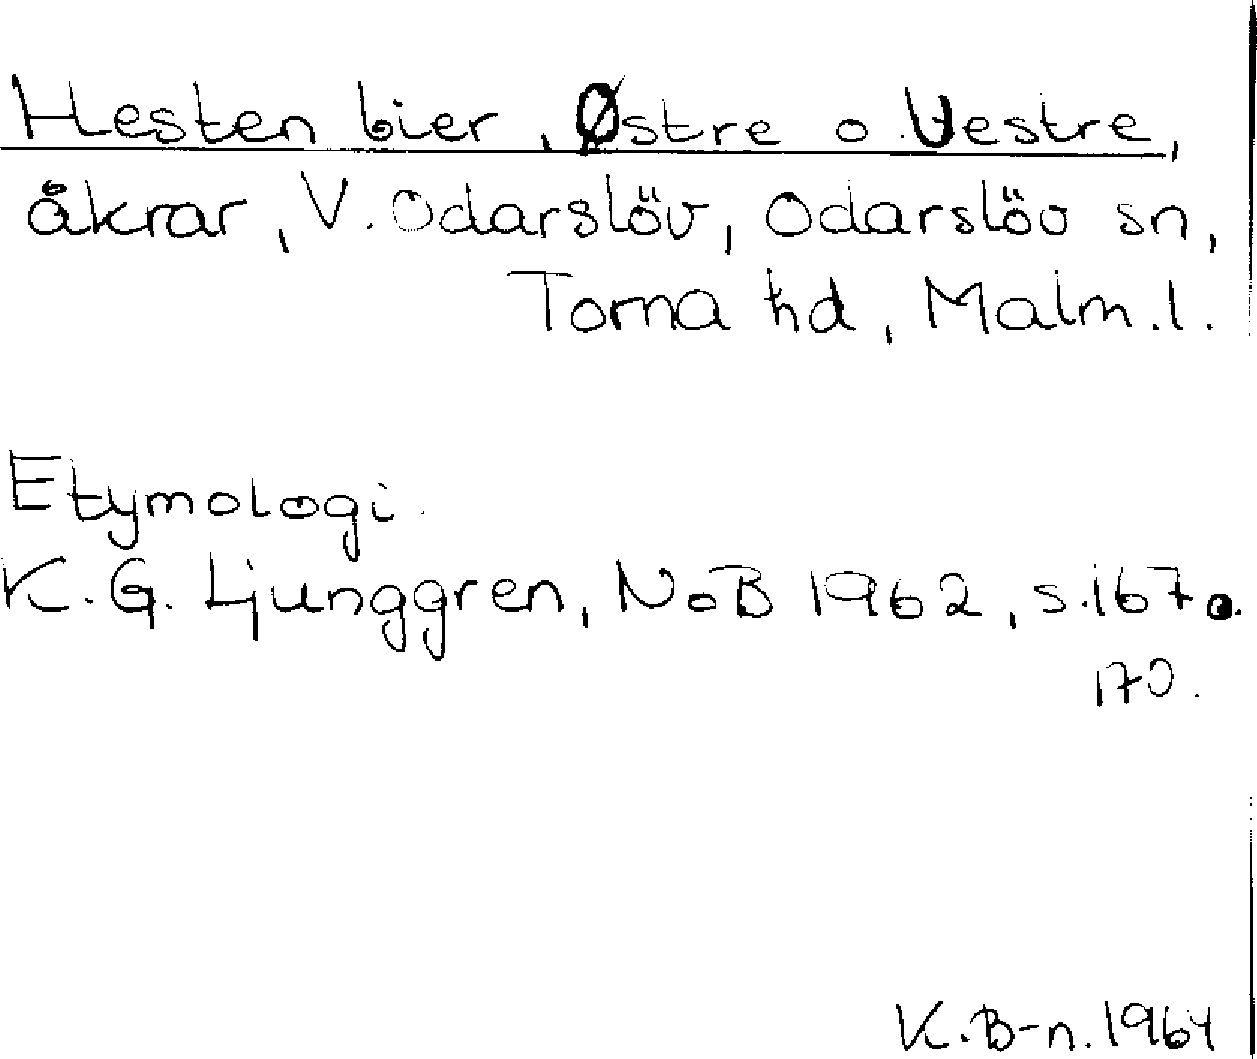 Hesten bier, Østre o. Vestre,
åkrar, V. Odarslöv, Odarslöv sn,
Torna hd, Malm. l.
Etymologi.
K. G. Ljunggren, NoB 1962, s. 167 o.
170.
K. B-n. 1964